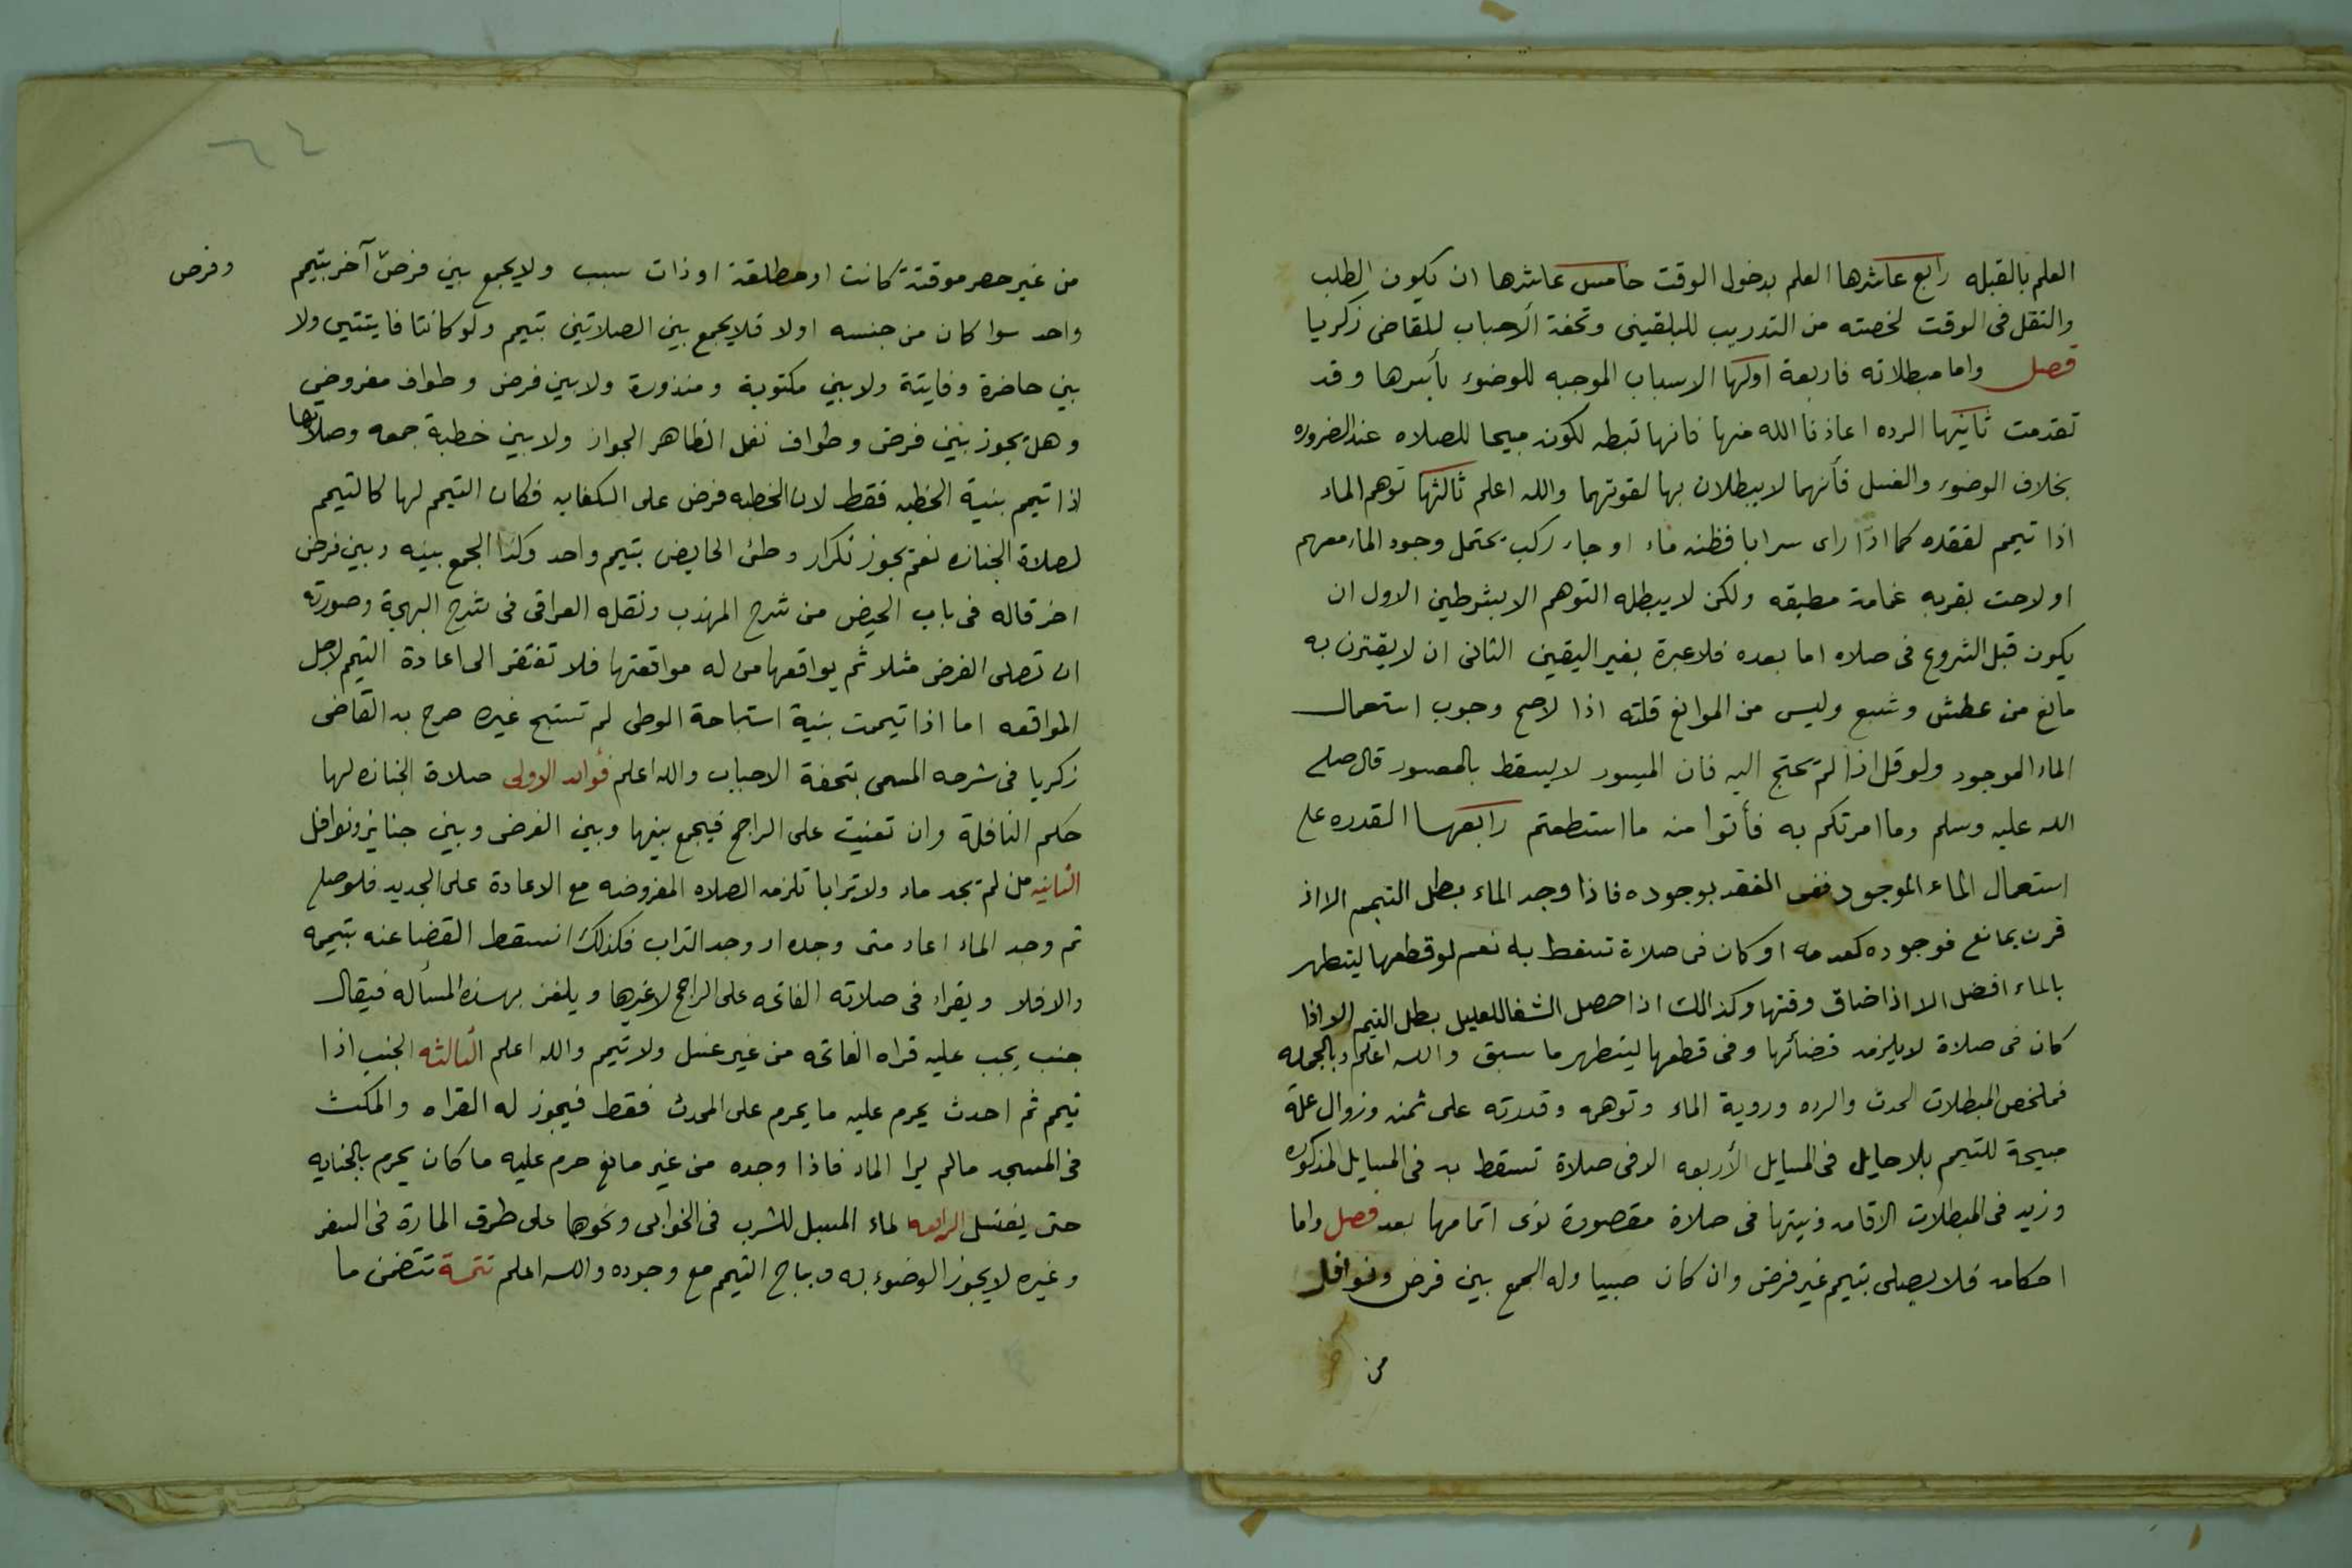 العلم بالقبله رابع عاشرها العلم بدخول الوقت خامس عاشرها ان يكون الطلب
والنقل فى الوقت لخصته من التدريب للبلقينى وتحفة الاحباب للقاضى زكريا
فصل واما مبطلاته فاربعة اولها الاسباب الموجبه للوضوء بأسرها وقد
تقدمت ثانيها الرده اعاذنا الله منها فانها تبطله لكونه مبيحا للصلاه عند الضروره
بخلاف الوضوء والغسل فأنهما لا يبطلان بها لقوتهما والله اعلم ثالثها توهم الماء
اذا تيمم لفقده كما اذا راى سرابا فظنه ماء او جاء ركب يحتمل وجود الماء معهم
او لاحت بقربه غمامة مطبقه ولكن لا يبطله التوهم الا بشرطين الاول ان
يكون قبل الشروع فى صلاه اما بعده فلا عبرة بغير اليقين الثانى ان لا يقترن به
مانع من عطش وسبع وليس من الموانع قلته اذا لاصح وجوب استعمال
الماء الموجود ولو قل اذا لم يحتج اليه فان الميسور لا يسقط بالمعسور قال صلى
الله عليه وسلم وما امرتكم به فأتوا منه ما استطعتم رابعها القدره على
استعمال الماء الموجود ففى الفقد بوجوده فاذا وجد الماء بطل التيمم الا اذ
قرن بمانع فوجوده كعدمه او كان فى صلاة تسقط به نعم لو قطعها ليتطهر
بالماء افضل الا اذا ضاق وقتها وكذالك اذا حصل الشفا للعليل بطل التيمم الا اذا
كان فى صلاة لا يلزمه قضائها وفى قطعها ليتطهر ما سبق والله اعلم وبالجمله
فملخص المبطلات الحدث والرده وروية الماء وتوهمه وقدرته على ثمنه وزوال علة
مبيحة للتيمم بلا حايل فى المسايل الأربعه الا فى صلاة تسقط به فى المسايل المذكوره
وزيد فى المبطلات الاقامه ونيتها فى صلاة مقصورة نوى اتمامها بعد فصل واما
احكامه فلا يصلى بتيمم غير فرض وان كان صبيا وله الجمع بين فرض ونوافل
من
من غير حصر موقتة كانت او مطلقة او ذات سبب ولا يجمع بين فرض آخر بتيمم
وفرض
واحد سوا كان من جنسه اولا فلا يجمع بين الصلاتين بتيمم ولو كانتا فايتتين ولا
بين حاضرة وفايتة ولا بين مكتوبة ومنذورة ولا بين فرض وطواف مفروض
وهل يجوز بين فرض وطواف نفل الظاهر الجواز ولا بين خطبة جمعه وصلاتها
اذا تيمم بنية الخطبه فقط لان الخطبه فرض على الكفايه فكان التيمم لها كالتيمم
لصلاة الجنازه نعم يجوز تكرار وطئ الحايض بتيمم واحد وكذا الجمع بينه وبين فرض
اخر قاله فى باب الحيض من شرح المهذب ونقله العراقى فى شرح البهجة وصورته
ان تصلى الفرض مثلا ثم يواقعها من له مواقعتها فلا تفتقر الى اعادة التيمم لاجل
المواقعه اما اذا تيممت بنية استباحة الوطى لم تستبح غيره صرح به القاضى
زكريا فى شرحه المسمى بتحفة الاحباب والله اعلم فوائد الاولى صلاة الجنازه لها
حكم النافلة وان تعنيت على الراجح فيجمع بينها وبين الفرض وبين جنايز ونوافل
الثانيه من لم يجد ماء ولا ترابا تلزمه الصلاه المفروضه مع الاعادة على الجديد فلو صلى
ثم وجد الماء اعاد متى وجده او وجد التراب فكذلك ان سقط القضا عنه بتيممه
والا فلا ويقراء فى صلاته الفاتحه على الراجح لا غيرها ويلغز بهذه المسأله فيقال
جنب يجب عليه قراه الفاتحه من غير غسل ولا تيمم والله اعلم الثالثه الجنب اذا
تيمم ثم احدث يحرم عليه ما يحرم على المحدث فقط فيجوز له القراه والمكث
فى المسجد مالم يرا الماء فاذا وجده من غير مانع حرم عليه ما كان يحرم بالجنابه
حتى يغتسل الرابعه لماء المسبل للشرب فى الخوابى ونحوها على طرق المارة فى السفر
وغيره لا يجوز الوضوء به ويباح التيمم مع وجوده والله اعلم تتمة تتضمن ما